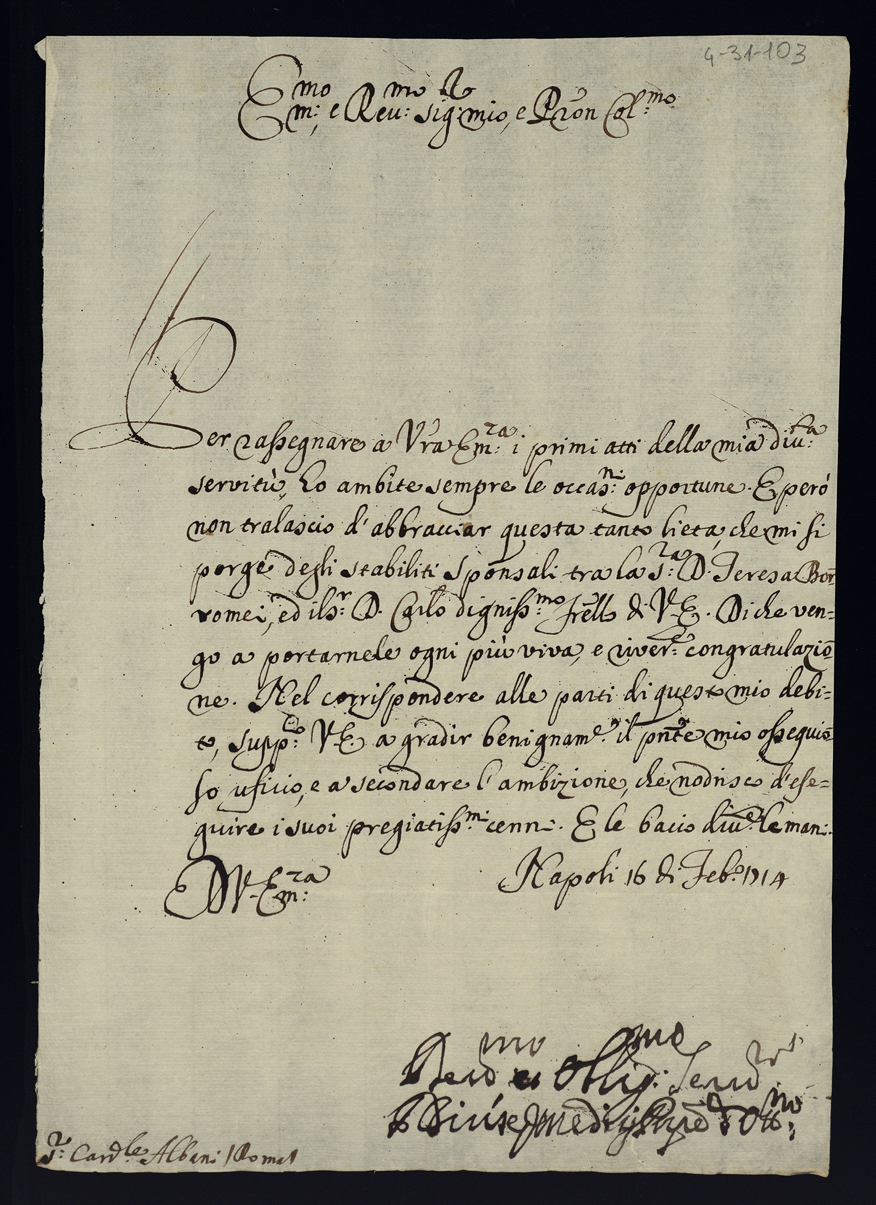 4-31-103
Em:mo, e Reu:mo Sig:r mio, e Pron Col:mo
Per rassegnare a V'ra Em:za i primi atti della mia diu:ta
seruitù, ho ambite sempre le occas:ni opportune. E però
non tralascio d'abbracciar questa tanto lieta, che mi si
porge degli stabiliti sponsali tra la S:ra D. Teresa Bor
romei, ed il S:r D. Carlo digniss:mo frello di V. E. Di che ven=
go a portarnele ogni più viva, e river:te congratulazio
ne. Nel corrispondere alle parti di questo mio debi=
to, supp:co V. E. a gradir benignam:e il pnte mio ossequio
so uficio, e a secondare l'ambizione, che nodrisco d'ese=
guire i suoi pregiatiss:mi cenni. E le bacio diu:e le mani.
D V. Em:za
Napoli 16 di Feb:o 1714
Deu:mo et Oblig:mo Seru:r
Medici Ott:no
S:r Card:le Albani / Roma /